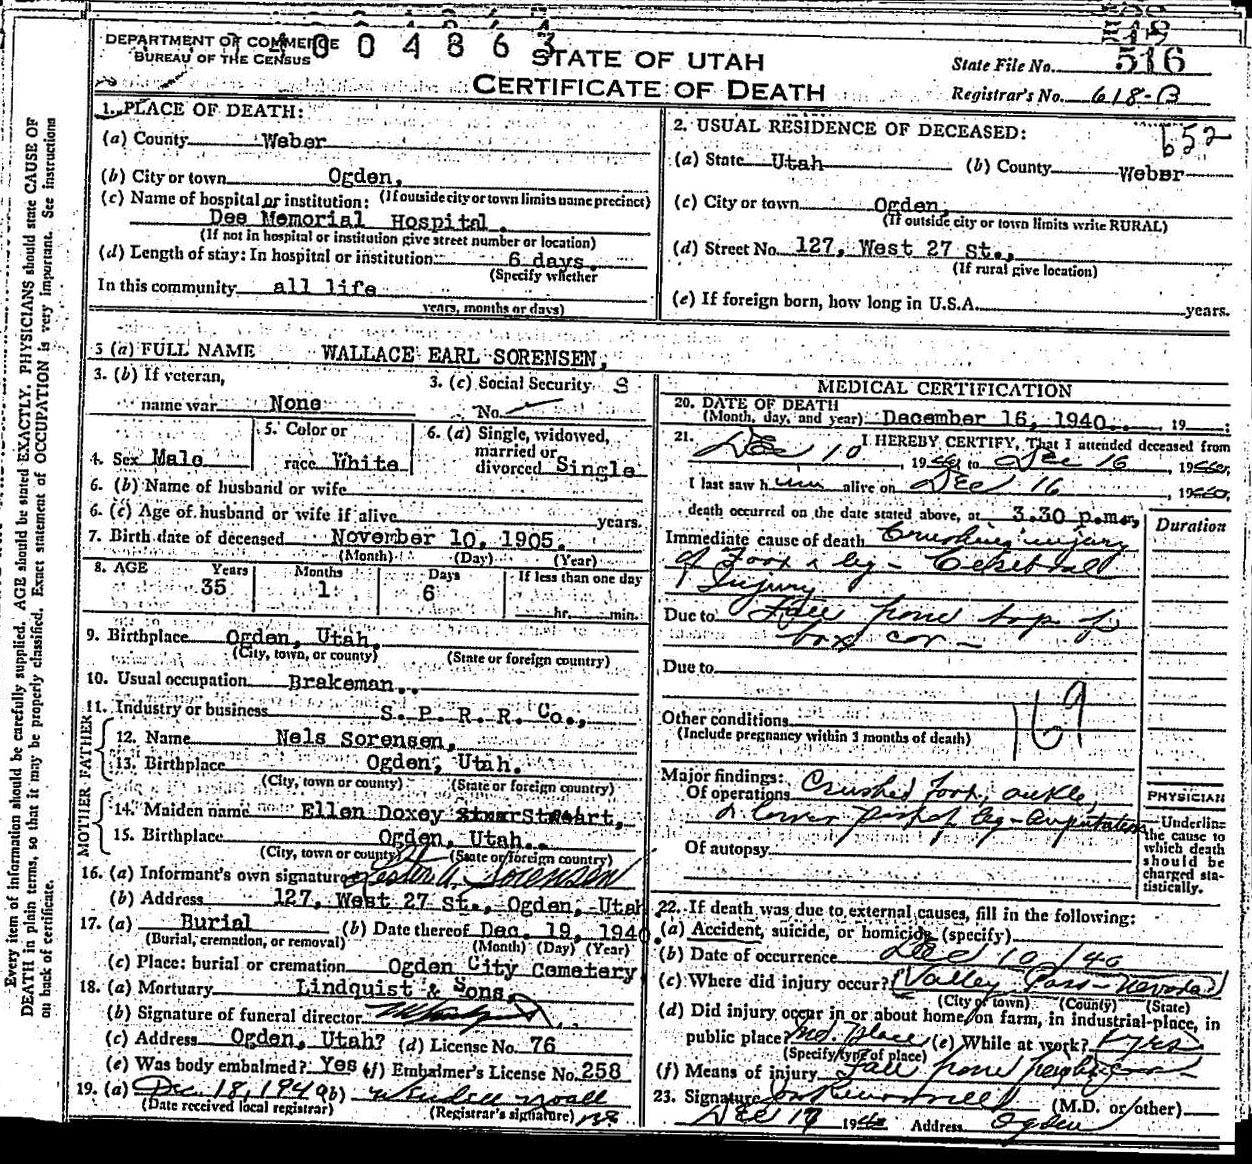 DEPARTMENT OF COMMERCE
BUREAU OF THE CENSUS
1004863
STATE OF UTAH
CERTIFICATE OF DEATH
516
State File No.
Registrar's No. 618-B
652
Every item of information should be carefully supplied. AGE should be stated EXACTLY. PHYSICIANS should state CAUSE OF
DEATH in plain terms, so that it may be properly classified. Exact statement of OCCUPATION is very important. See instructions
on back of certificate.
1. PLACE OF DEATH:
(a) County Weber
(b) City or town Ogden,
(If outside city or town limits name precinct)
(c) Name of hospital or institution:
Dee Memorial Hospital.
(If not in hospital or institution give street number or location)
(d) Length of stay: In hospital or institution 6 days.
(Specify whether
In this community all life
years, months or days)
2. USUAL RESIDENCE OF DECEASED:
(a) State Utah (b) County Weber
(c) City or town Ogden,
(If outside city or town limits write RURAL)
(d) Street No. 127, West 27 St.,
(If rural give location)
(e) If foreign born, how long in U.S.A. years.
3 (a) FULL NAME WALLACE EARL SORENSEN,
3. (b) If veteran,
name war None
3. (c) Social Security S
No.
4. Sex Male
5. Color or
race White
6. (a) Single, widowed,
married or
divorced Single
6. (b) Name of husband or wife
6. (c) Age of husband or wife if alive years.
7. Birth date of deceased November 10, 1905.
(Month) (Day) (Year)
8. AGE Years Months Days If less than one day
35 1 6 hr. min.
9. Birthplace Ogden, Utah.
(City, town, or county) (State or foreign country)
10. Usual occupation Brakeman..
11. Industry or business S. P. R. R. Co.,
FATHER
12. Name Nels Sorensen,
13. Birthplace Ogden, Utah.
(City, town or county) (State or foreign country)
MOTHER
14. Maiden name Ellen Doxey
15. Birthplace Ogden, Utah..
(City, town or county) (State or foreign country)
16. (a) Informant's own signature Lester A. Sorensen
(b) Address 127, West 27 St., Ogden, Utah
17. (a) Burial (b) Date thereof Dec. 19, 1940.
(Burial, cremation, or removal) (Month) (Day) (Year)
(c) Place: burial or cremation Ogden City Cemetery
18. (a) Mortuary Lindquist & Sons,
(b) Signature of funeral director
(c) Address Ogden, Utah? (d) License No. 76
(e) Was body embalmed? Yes (f) Embalmer's License No. 258
19. (a) Dec. 18, 1940 (b) Wendell Noall
(Date received local registrar) (Registrar's signature)
MEDICAL CERTIFICATION
20. DATE OF DEATH
(Month, day, and year) December 16, 1940. 19
21. I HEREBY CERTIFY, That I attended deceased from
Dec 10, 1940, to Dec 16, 1940,
I last saw him alive on Dec 16, 1940,
death occurred on the date stated above, at 3.30 p.m.,
Duration
Immediate cause of death Crushing injury
of Foot & leg - Cerebral
Injury
Due to Fall from top of
box car -
Due to
Other conditions
(Include pregnancy within 3 months of death)
169
Major findings:
Of operations Crushed foot, ankle,
& lower part of leg - amputation
Of autopsy
PHYSICIAN
Underline
the cause to
which death
should be
charged sta-
tistically.
22. If death was due to external causes, fill in the following:
(a) Accident, suicide, or homicide (specify)
(b) Date of occurrence Dec 10/40
(c) Where did injury occur? Valley Pass - Nevada
(City or town) (County) (State)
(d) Did injury occur in or about home, on farm, in industrial place, in
public place? Ind. place (e) While at work? Yes
(Specify type of place)
(f) Means of injury Fall from freight car
23. Signature (M.D. or other)
Dec 17 1940 Address Ogden